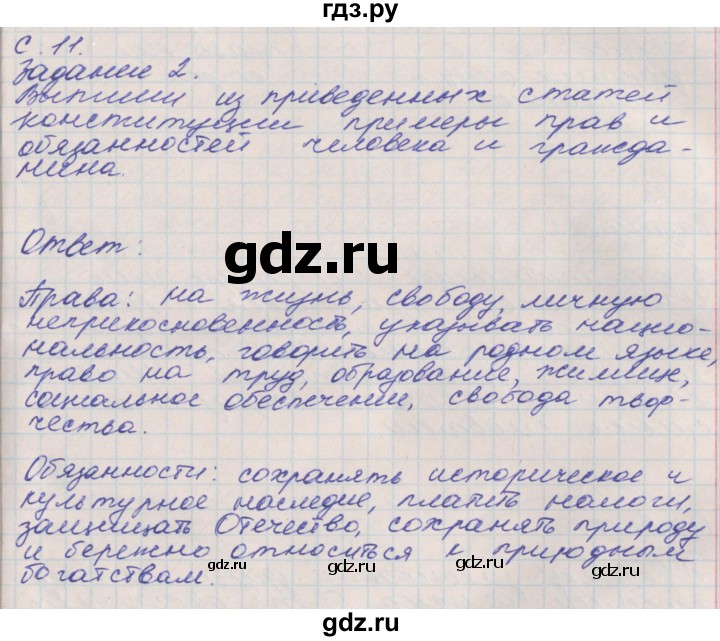 гдз.ру
С. 11.
Задание 2.
Выпиши из приведенных статей
конституции примеры прав и
обязанностей человека и гражда-
нина.
Ответ:
gdz.ru
Права: на жизнь, свободу, личную
неприкосновенность, указывать нацио-
нальность, говорить на родном языке,
право на труд, образование, жилище,
социальное обеспечение, свобода твор-
чества.
Обязанности: сохранять историческое и
культурное наследие, платить налоги,
защищать Отечество, сохранять природу
и бережно относиться к природным
богатствам.
gdz.ru gdz.ru gdz.ru
gdz.ru gdz.ru